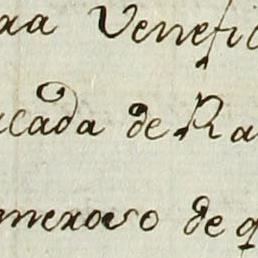 ra Venefic
cada de Ra
meroso de q